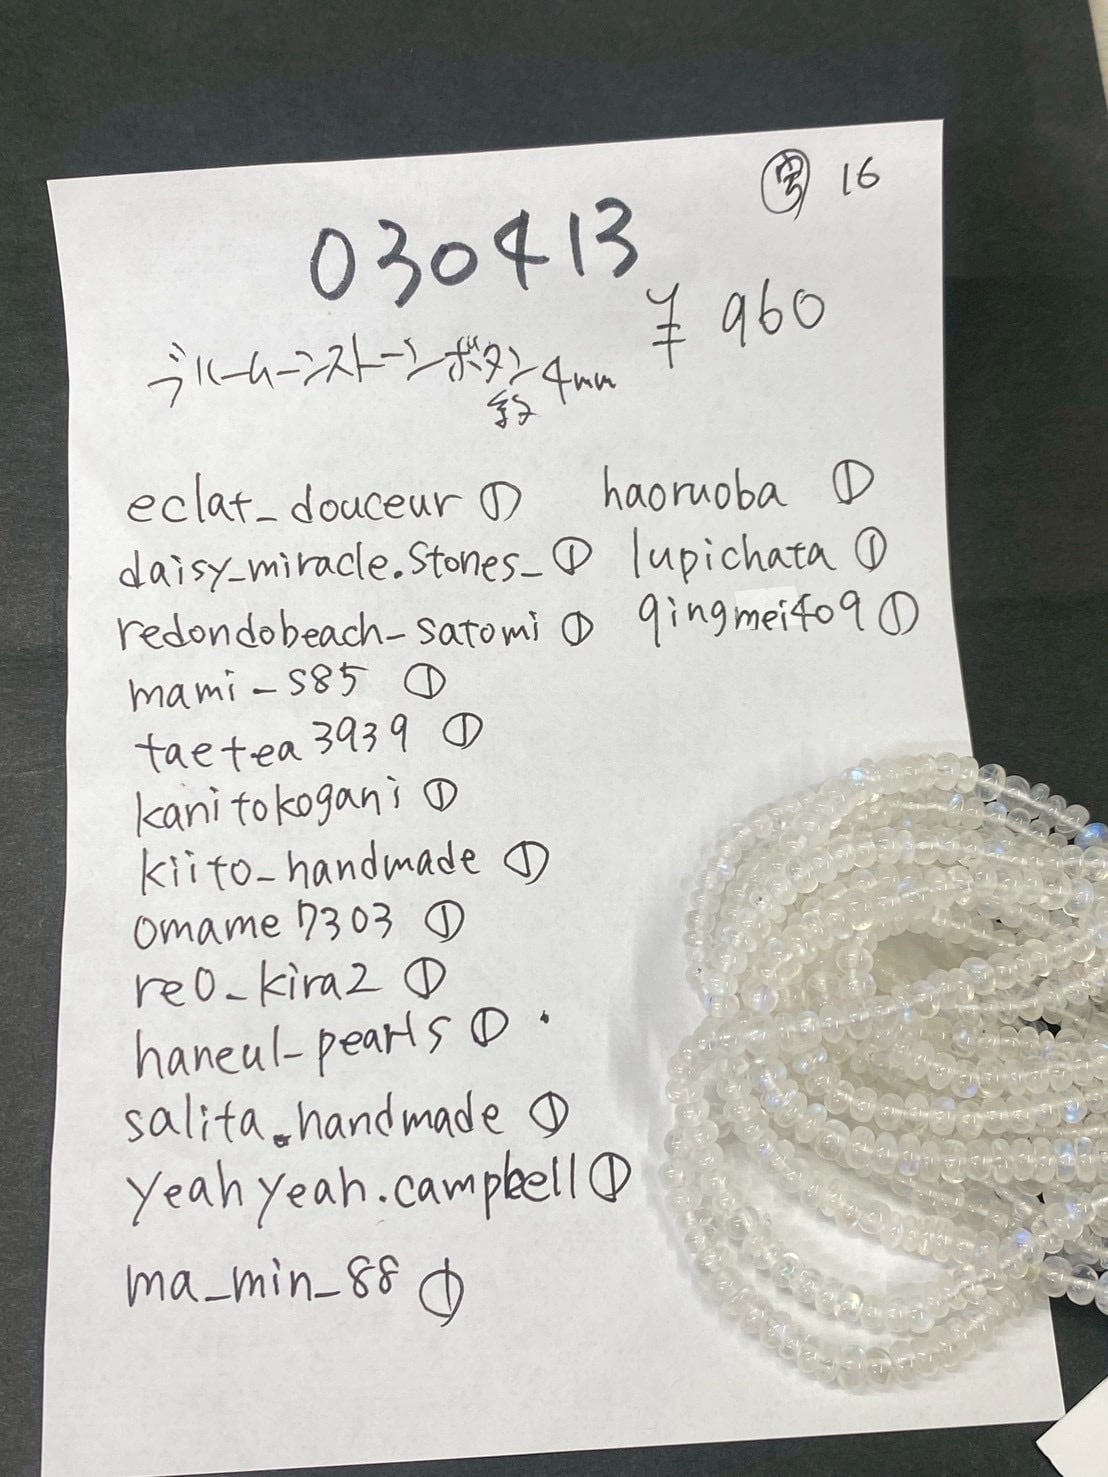 16
030413
¥ 960
ブルームーンストーンボタン4mm
eclat_douceur ①
daisy_miracle.stones_ ①
redondobeach-satomi ①
mami-s85 ①
taetea3939 ①
kanitokogani ①
kiito_handmade ①
omame7303 ①
reo_kira2 ①
haneul-pearls ①
salita.handmade ①
yeahyeah.campbell ①
ma_min_88 ①
haoruoba ①
lupichata ①
qingmei409 ①